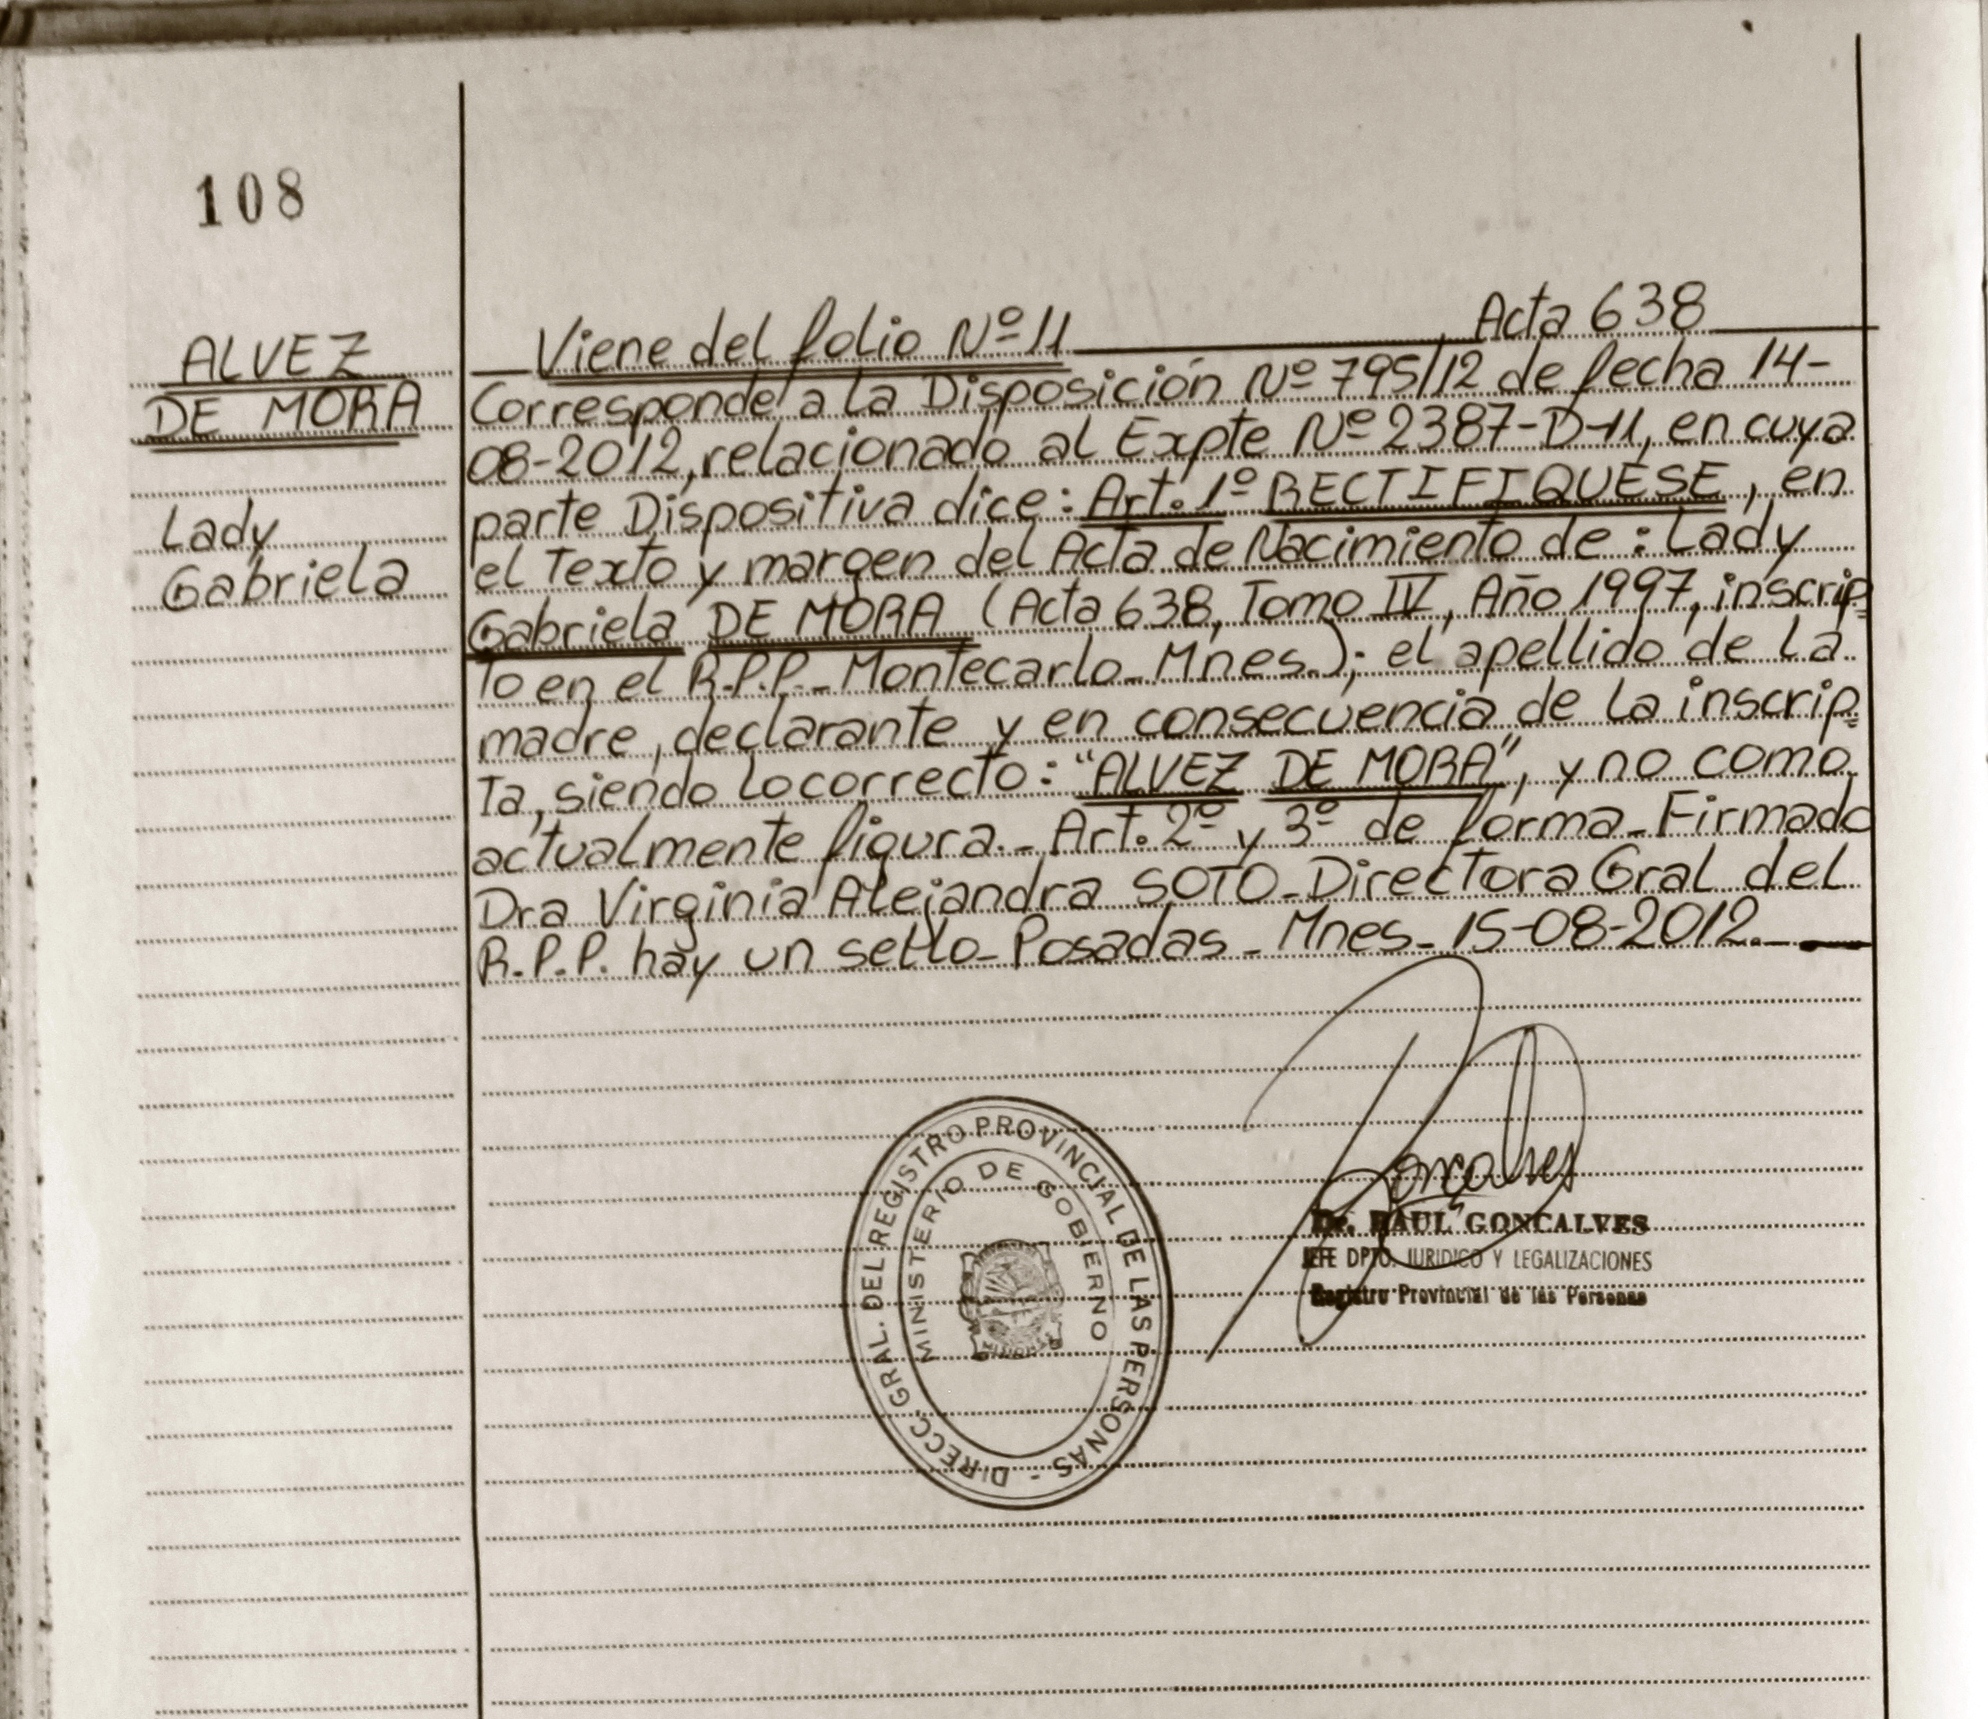 108
ALVEZ
DE MORA
Lady
Gabriela
Viene del folio Nº 11 Acta 638
Corresponde a la Disposición Nº 795/12 de fecha 14-
08-2012, relacionado al Expte Nº 2387-D-11, en cuya
parte Dispositiva dice: Art. 1º RECTIFIQUESE, en
el Texto y margen del Acta de Nacimiento de: Lady
Gabriela DE MORA (Acta 638, Tomo IV, Año 1997, inscrip=
to en el R.P.P. Montecarlo - Mnes.); el apellido de la
madre, declarante y en consecuencia de la inscrip=
ta, siendo lo correcto: "ALVEZ DE MORA", y no como
actualmente figura.- Art. 2º y 3º de forma - Firmado
Dra Virginia Alejandra SOTO - Directora Gral del
R.P.P. hay un sello - Posadas - Mnes - 15-08-2012.-
DIRECC. GRAL. DEL REGISTRO PROVINCIAL DE LAS PERSONAS -
MINISTERIO DE GOBIERNO
MISIONES
Gonçalves
Dr. RAUL GONCALVES
JEFE DPTO. JURIDICO Y LEGALIZACIONES
Registro Provincial de las Personas